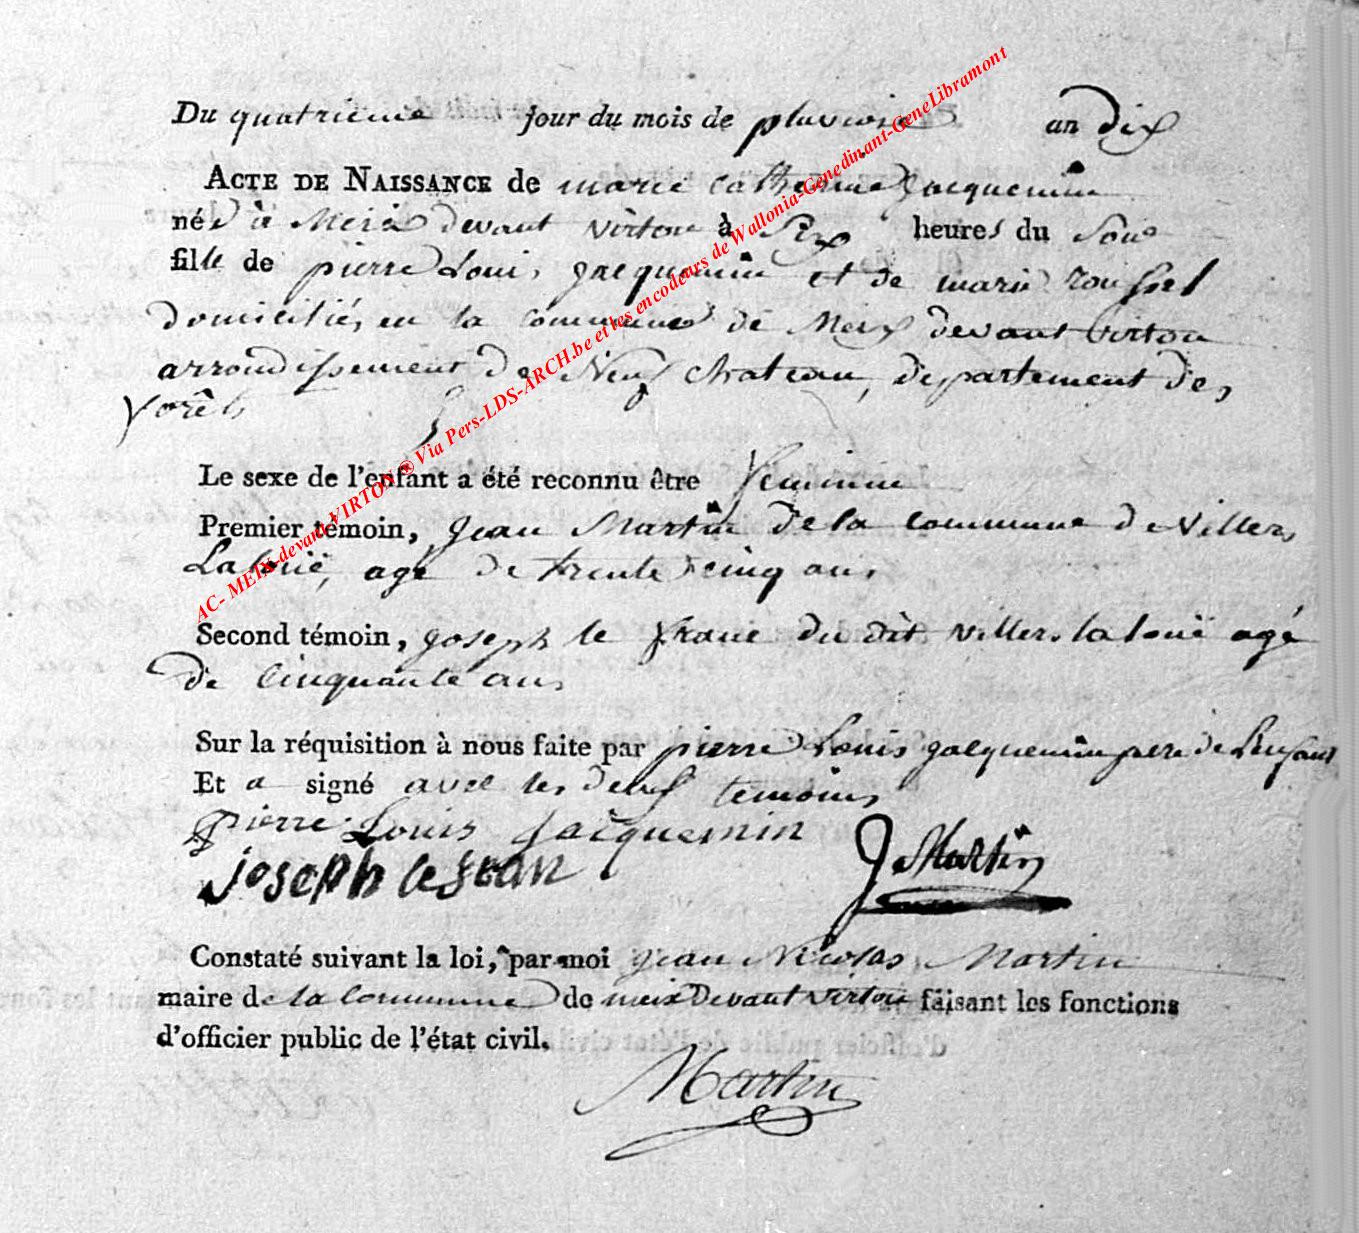 Du quatrieme jour du mois de pluviose an dix
ACTE DE NAISSANCE de marie Catherine Jacquemin
née à Meix devant virton à Six heures du Soir
fille de pierre Loui, jacquemin et de marie roussel
domiciliés en la commune de Meix devant virton
arrondissement de Neuf chateau, departement des
forêts
Le sexe de l'enfant a été reconnu être feminin
Premier témoin, jean Martin de la commune de villers
Laloüe, agé de trente cinq ans
Second témoin, joseph le franc du dit villers la loüe agé
de Cinquante ans
Sur la réquisition à nous faite par pierre Louis jacquemin pere de l'enfant
Et a signé avec les deux temoins
pierre Louis Jacquemin
joseph lefran J Martin
Constaté suivant la loi, par moi jean Nicolas Martin
maire de la Commune de meix Devant virton faisant les fonctions
d'officier public de l'état civil.
Martin
AC- MEIX-devant-VIRTON ® Via Pers-LDS-ARCH.be et les encodeurs de Wallonia-Genedinant-GeneLibramont